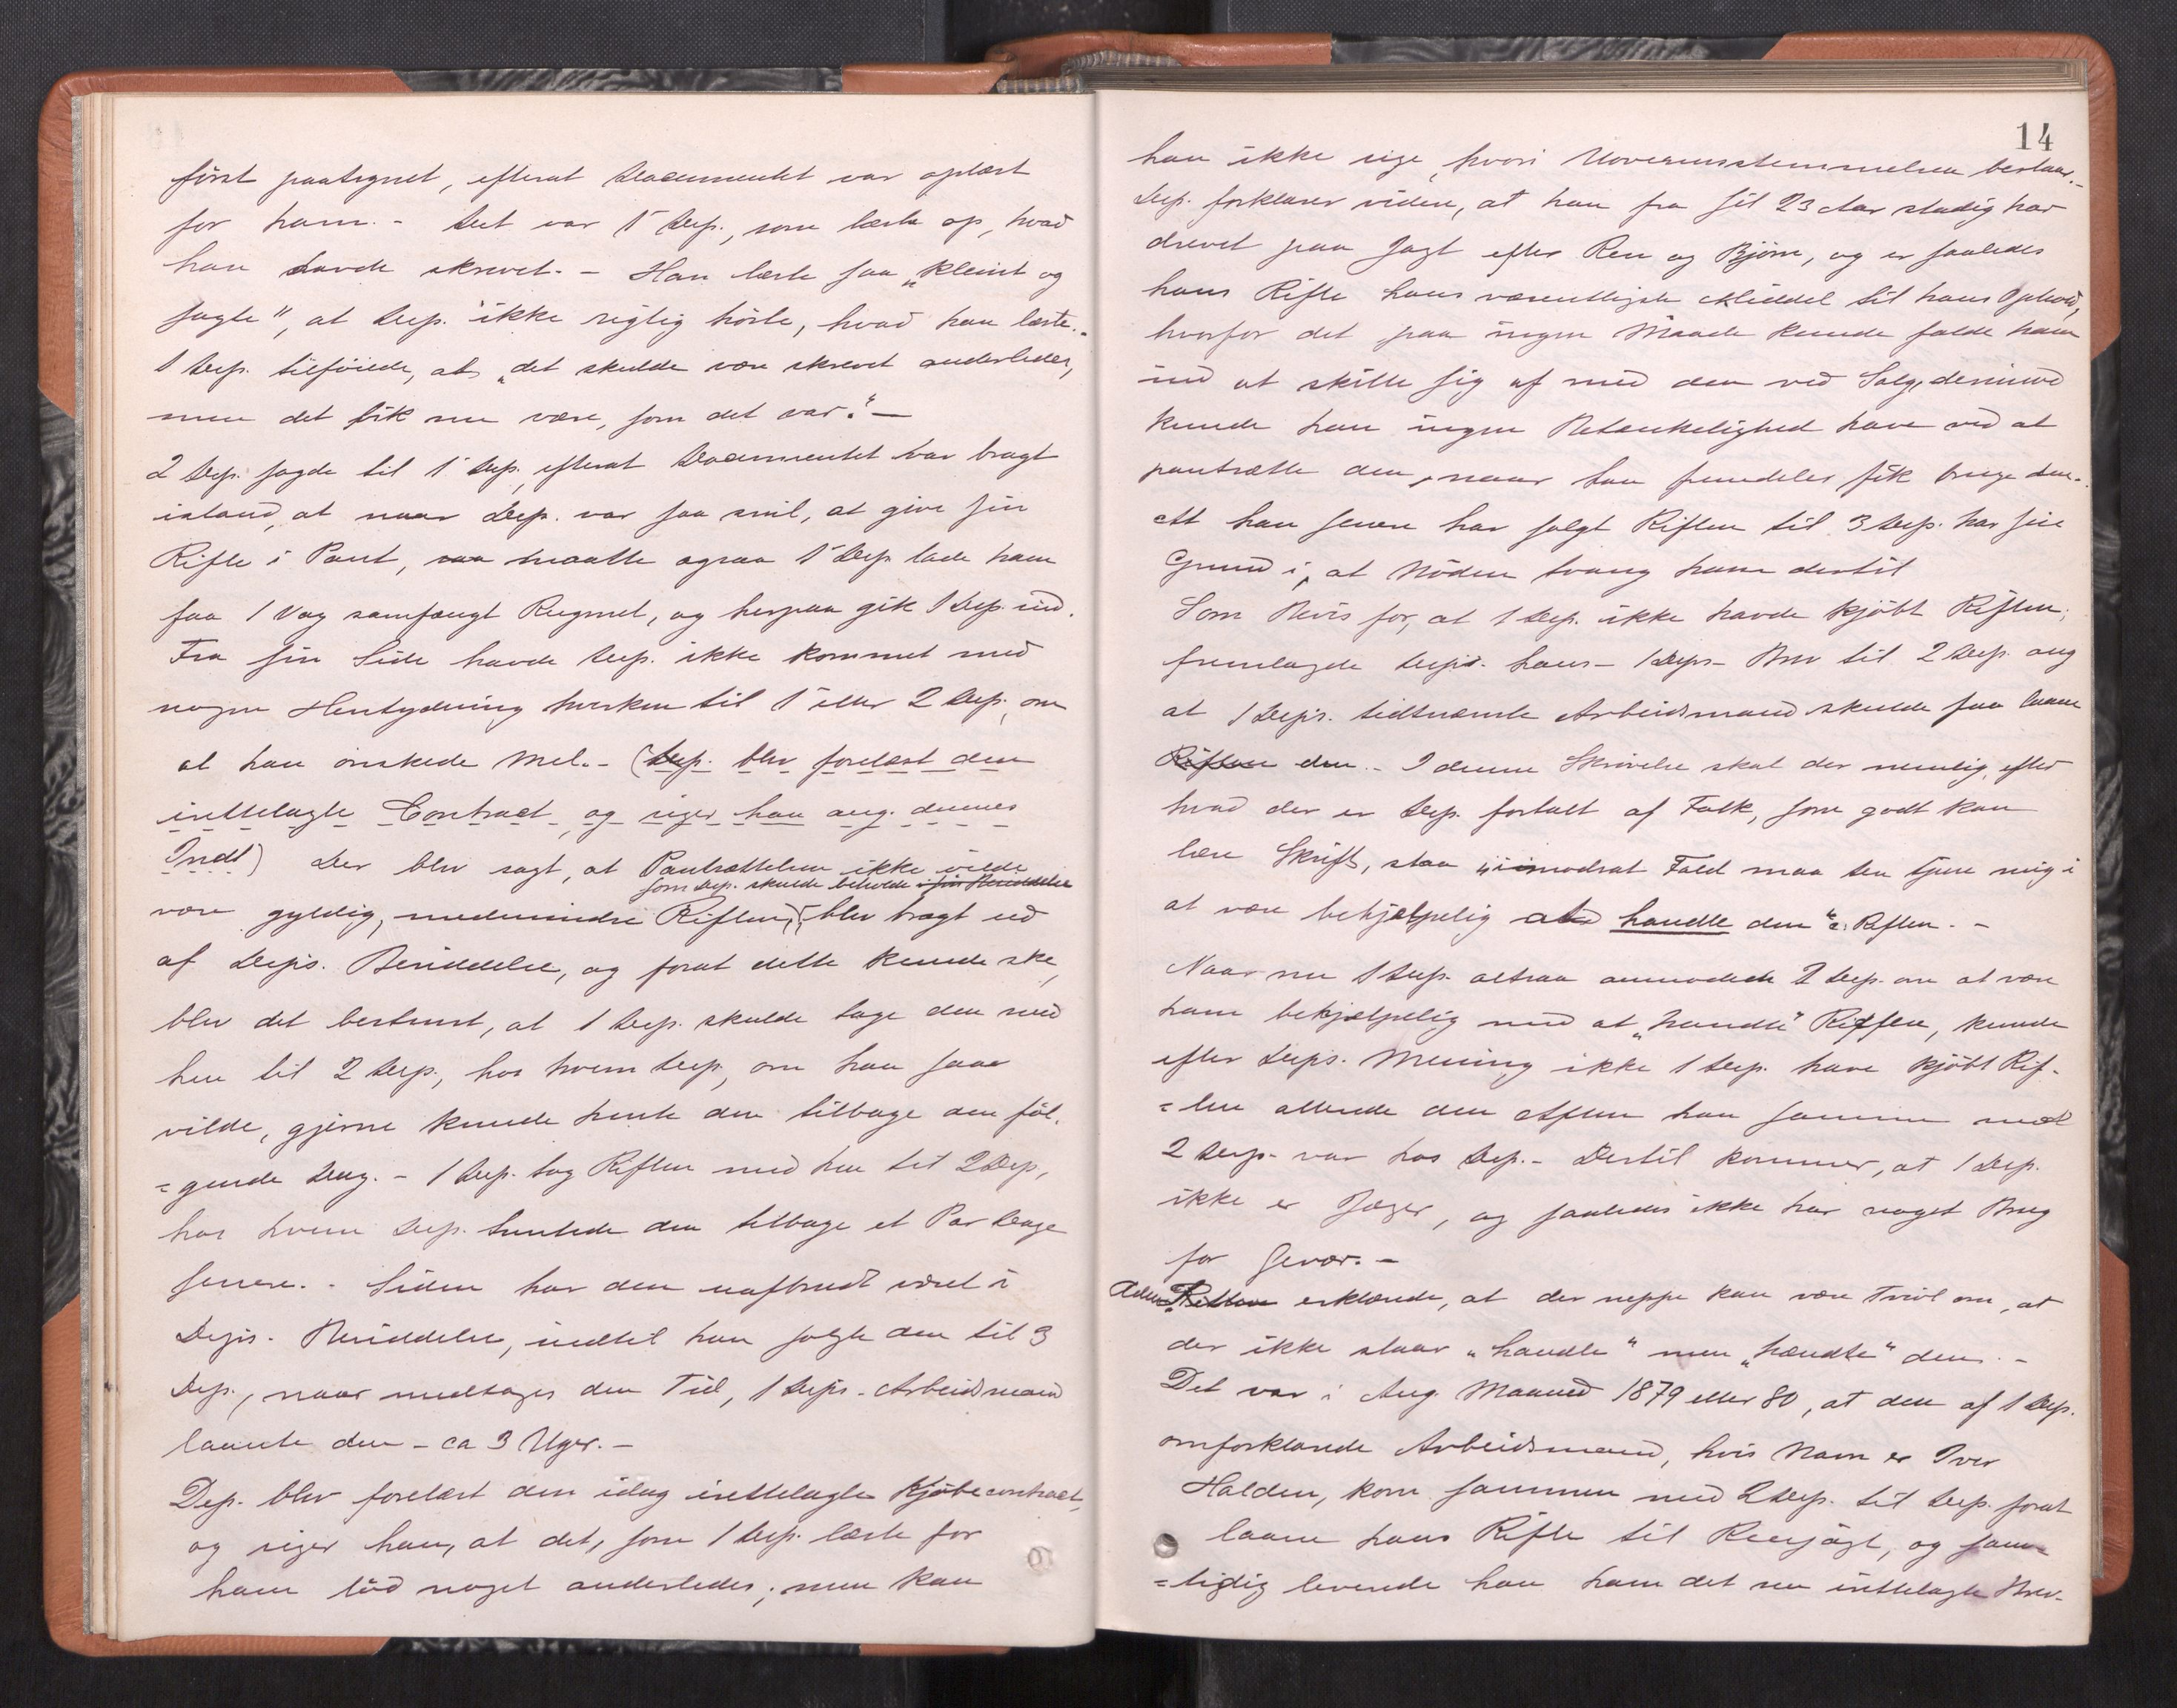 först paategnet, efterat Documentet var oplæst
for ham. - Det var 1 Dep., som læste op, hvad
han havde skrevet. - Han læste saa „kleint og
sagte", at Dep. ikke rigtig hörte, hvad han læste. -
1 Dep. tilföiede, at „det skulde være skrevet anderledes,
men det fik nu være, som det var." -
2 Dep. sagde til 1 Dep., efterat Documentet var bragt
istand, at naar Dep. var saa snil, at give sin
Rifle i Pant, saa maatte ogsaa 1 Dep lade ham
faa 1 Vog samfængt Rugmel, og herpaa gik 1 Dep. ind.
Fra sin Side havde Dep. ikke kommet med
nogen Hentydning hverken til 1 eller 2 Dep., om
at han önskede Mel. - (Dep. blev forelæst den
irettelagte Contract, og siger han ang. dennes
Indt) Der blev sagt, at Pantsættelsen ikke vilde
som Dep. skulde beholde i sin Besiddelse
være gyldig, medmindre Riflen, blev bragt ud
af Dep's. Besiddelse, og forat dette kunde ske,
blev det bestemt, at 1 Dep. skulde tage den med
hen til 2 Dep., hos hvem Dep., om han saa
vilde, gjerne kunde hente den tilbage den föl-
=gende Dag. - 1 Dep. tog Riflen med hen til 2 Dep,
hos hvem Dep. hentede den tilbage et Par Dage
senere. - Siden har den uafbrudt været i
Dep's. Besiddelse, indtil han solgte den til 3
Dep., naar undtages den Tid, 1 Dep's. Arbeidsmand
laante den - ca 3 Uger. -
Dep. blev forelæst den idag irettelagte Kjöbecontract,
og siger han, at det, som 1 Dep. læste for
ham löd noget anderledes; men kan
14
han ikke sige, hvori Uoverensstemmelsen bestaar. -
Dep. forklarer videre, at han fra sit 23 Aar stadig har
drevet paa Jagt efter Ren og Björn, og er saaledes
hans Rifle hans væsentligste Middel til hans Ophold,
hvorfor det paa ingen Maade kunde falde ham
ind at skille sig af med den ved Salg, derimod
kunde han ingen Betænkelighed have ved at
pantsætte den, naar han fremdeles fik bruge den. -
At han senere har solgt Riflen til 3 Dep. har sin
Grund i, at Nöden tvang ham dertil
Som Bevis for, at 1 Dep. ikke havde kjöbt Riflen,
fremlagde Dep. hans - 1 Deps - Brev til 2 Dep. ang
at 1 Dep's. tidtnævnte Arbeidsmand skulde faa laane
Riflen den. - I denne Skrivelse skal der nemlig, efter
hvad der er Dep. fortalt af Folk, som godt kan
læse Skrift, staa „i imodsat Fald maa De tjene mig i
at være behjelpelig at handle den" ɔ: Riflen. -
Naar nu 1 Dep. altsaa anmodede 2 Dep. om at være
ham behjelpelig med at „handle" Riflen, kunde
efter Dep's. Mening ikke 1 Dep. have kjöbt Rif-
=len allerede den Aften han sammen med
2 Dep. var hos Dep. - Dertil kommer, at 1 Dep.
ikke er Jæger, og saaledes ikke har noget Brug
for Gevær. -
Retten erklærede, at der neppe kan være Tvivl om, at
der ikke staar „handle" men „hændte" den. -
Det var i Aug. Maaned 1879 eller 80, at den af 1 Dep.
omforklarede Arbeidsmand, hvis Navn er Iver
Halden, kom sammen med 2 Dep. til Dep. forat
laane hans Rifle til Reenjagt, og sam=
=tidig leverede han ham det nu irettelagte Brev -